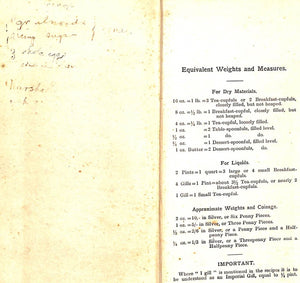 Equivalent Weights and Measures.
For Dry Materials.
16 oz. = 1 lb. = 3 Tea-cupfuls or 2 Breakfast-cupfuls,
closely filled, but not heaped.
8 oz. = ½ lb. = 1 Breakfast-cupful, closely filled, but
not heaped.
4 oz. = ¼ lb. = 1 Tea-cupful, loosely filled.
1 oz. = 2 Table-spoonfuls, filled level.
½ oz. = 1 do. do.
¼ oz. = 1 Dessert-spoonful, filled level.
1 oz. Butter = 2 Dessert-spoonfuls, do.
For Liquids.
2 Pints = 1 quart = 3 large or 4 small Breakfast-
cupfuls.
4 Gills = 1 Pint = about 3½ Tea-cupfuls, or nearly 2
Breakfast-cupfuls.
1 Gill = 1 Small Tea-cupful.
Approximate Weights and Coinage.
2 oz = 10/- in Silver, or Six Penny Pieces.
1 oz = 5/- in Silver, or Three Penny Pieces.
½ oz = 2/6 in Silver, or a Penny Piece and a Half-
penny Piece.
¼ oz = 1/3 in Silver, or a Threepenny Piece and a
Halfpenny Piece.
IMPORTANT.
Where "1 gill" is mentioned in the recipes it is to
be understood as an Imperial Gill, equal to ¼ pint.